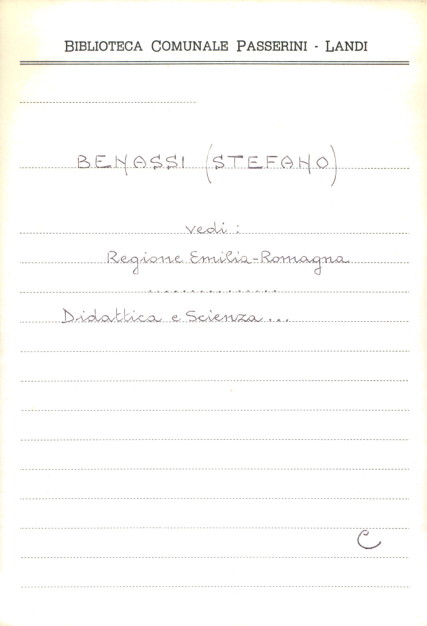 BIBLIOTECA COMUNALE PASSERINI - LANDI
BENASSI (STEFANO)
vedi :
Regione Emilia-Romagna
...............
Didattica e Scienza...
C